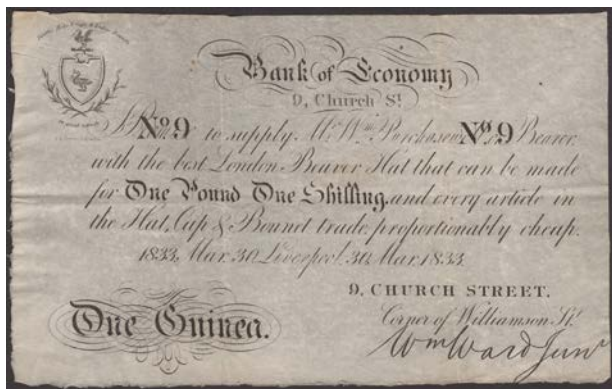 Bank of Economy
9, Church St.
I P Nº 9 to supply Mr. Wm. Purchaser Nº 9 Bearer
with the best London Beaver Hat that can be made
for One Pound One Shilling, and every article in
the Hat, Cap & Bonnet trade, proportionably cheap.
1833, Mar. 30, Liverpool, 30, Mar. 1833.
9, CHURCH STREET.
Corner of Williamson St.
One Guinea.
Wm Ward Junr